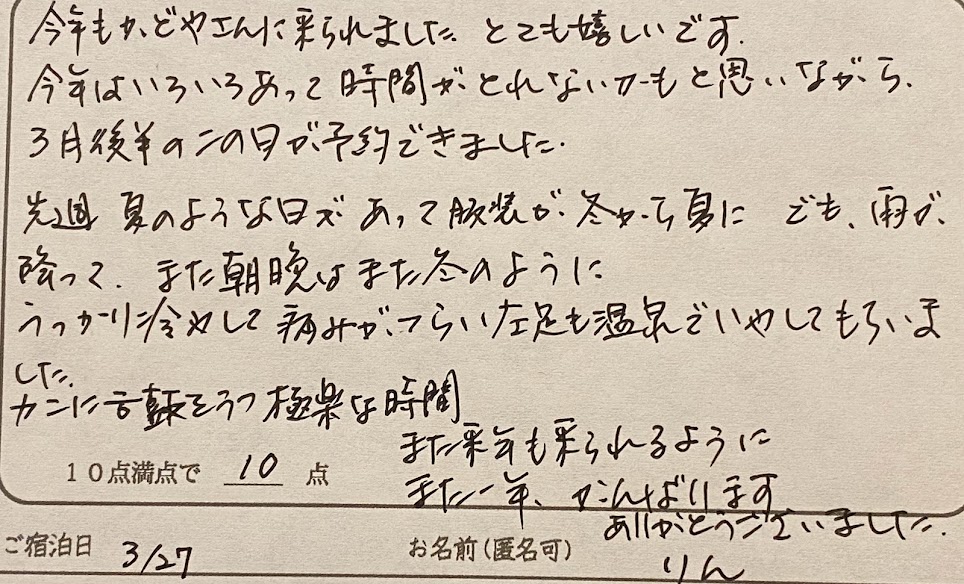 今年もかどやさんに来られました とても嬉しいです.
今年はいろいろあって時間がとれないかもと思いながら、
3月後半のこの日が予約できました.
先週 夏のような日があって服装が冬から夏に でも、雨が
降って、また朝晩はまた冬のように
うっかり冷やして痛みがつらい左足も温泉でいやしてもらいま
した.
カニに舌鼓をうつ極楽な時間
また来年も来られるように
また一年、がんばります
ありがとうございました.
10点満点で 10 点
ご宿泊日 3/27 お名前(匿名可) りん